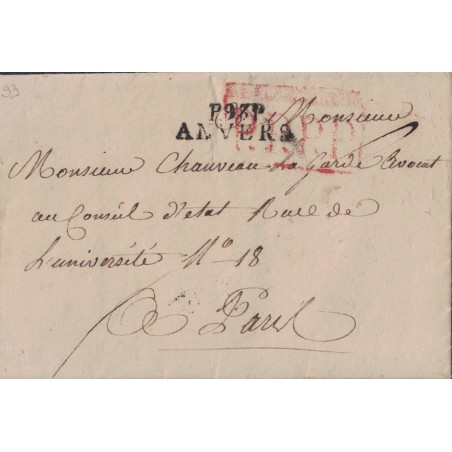 93
P93P
ANVERS
Monsieur
Monsieur Chauveau La Garde Avocat
au Conseil d'etat Rue de
L'université N° 18
A Paris